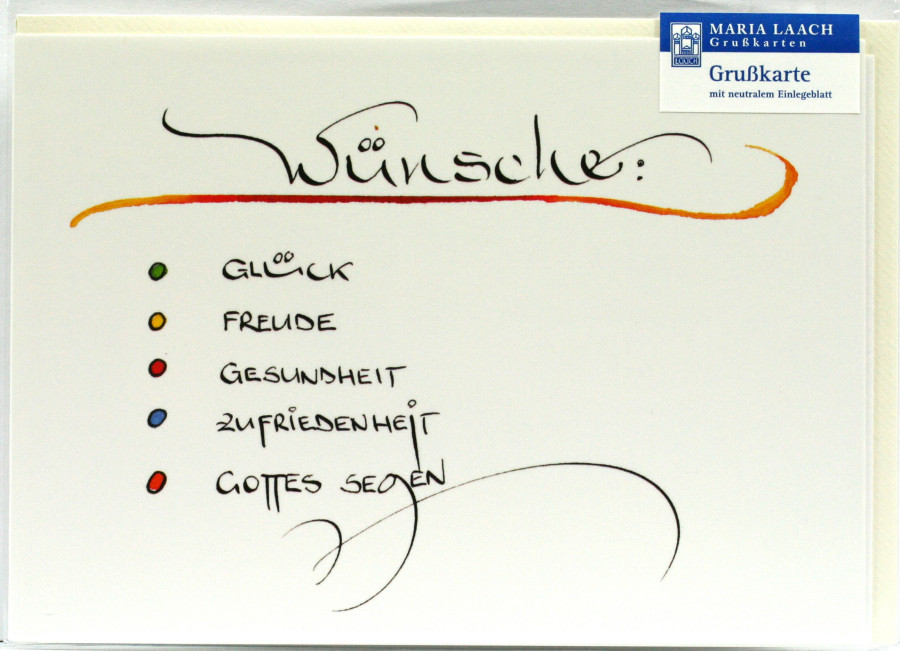 MARIA LAACH
Grußkarten
LAACH
Grußkarte
mit neutralem Einlegeblatt
Wünsche:
GLÜCK
FREUDE
GESUNDHEIT
ZUFRIEDENHEIT
GOTTES SEGEN